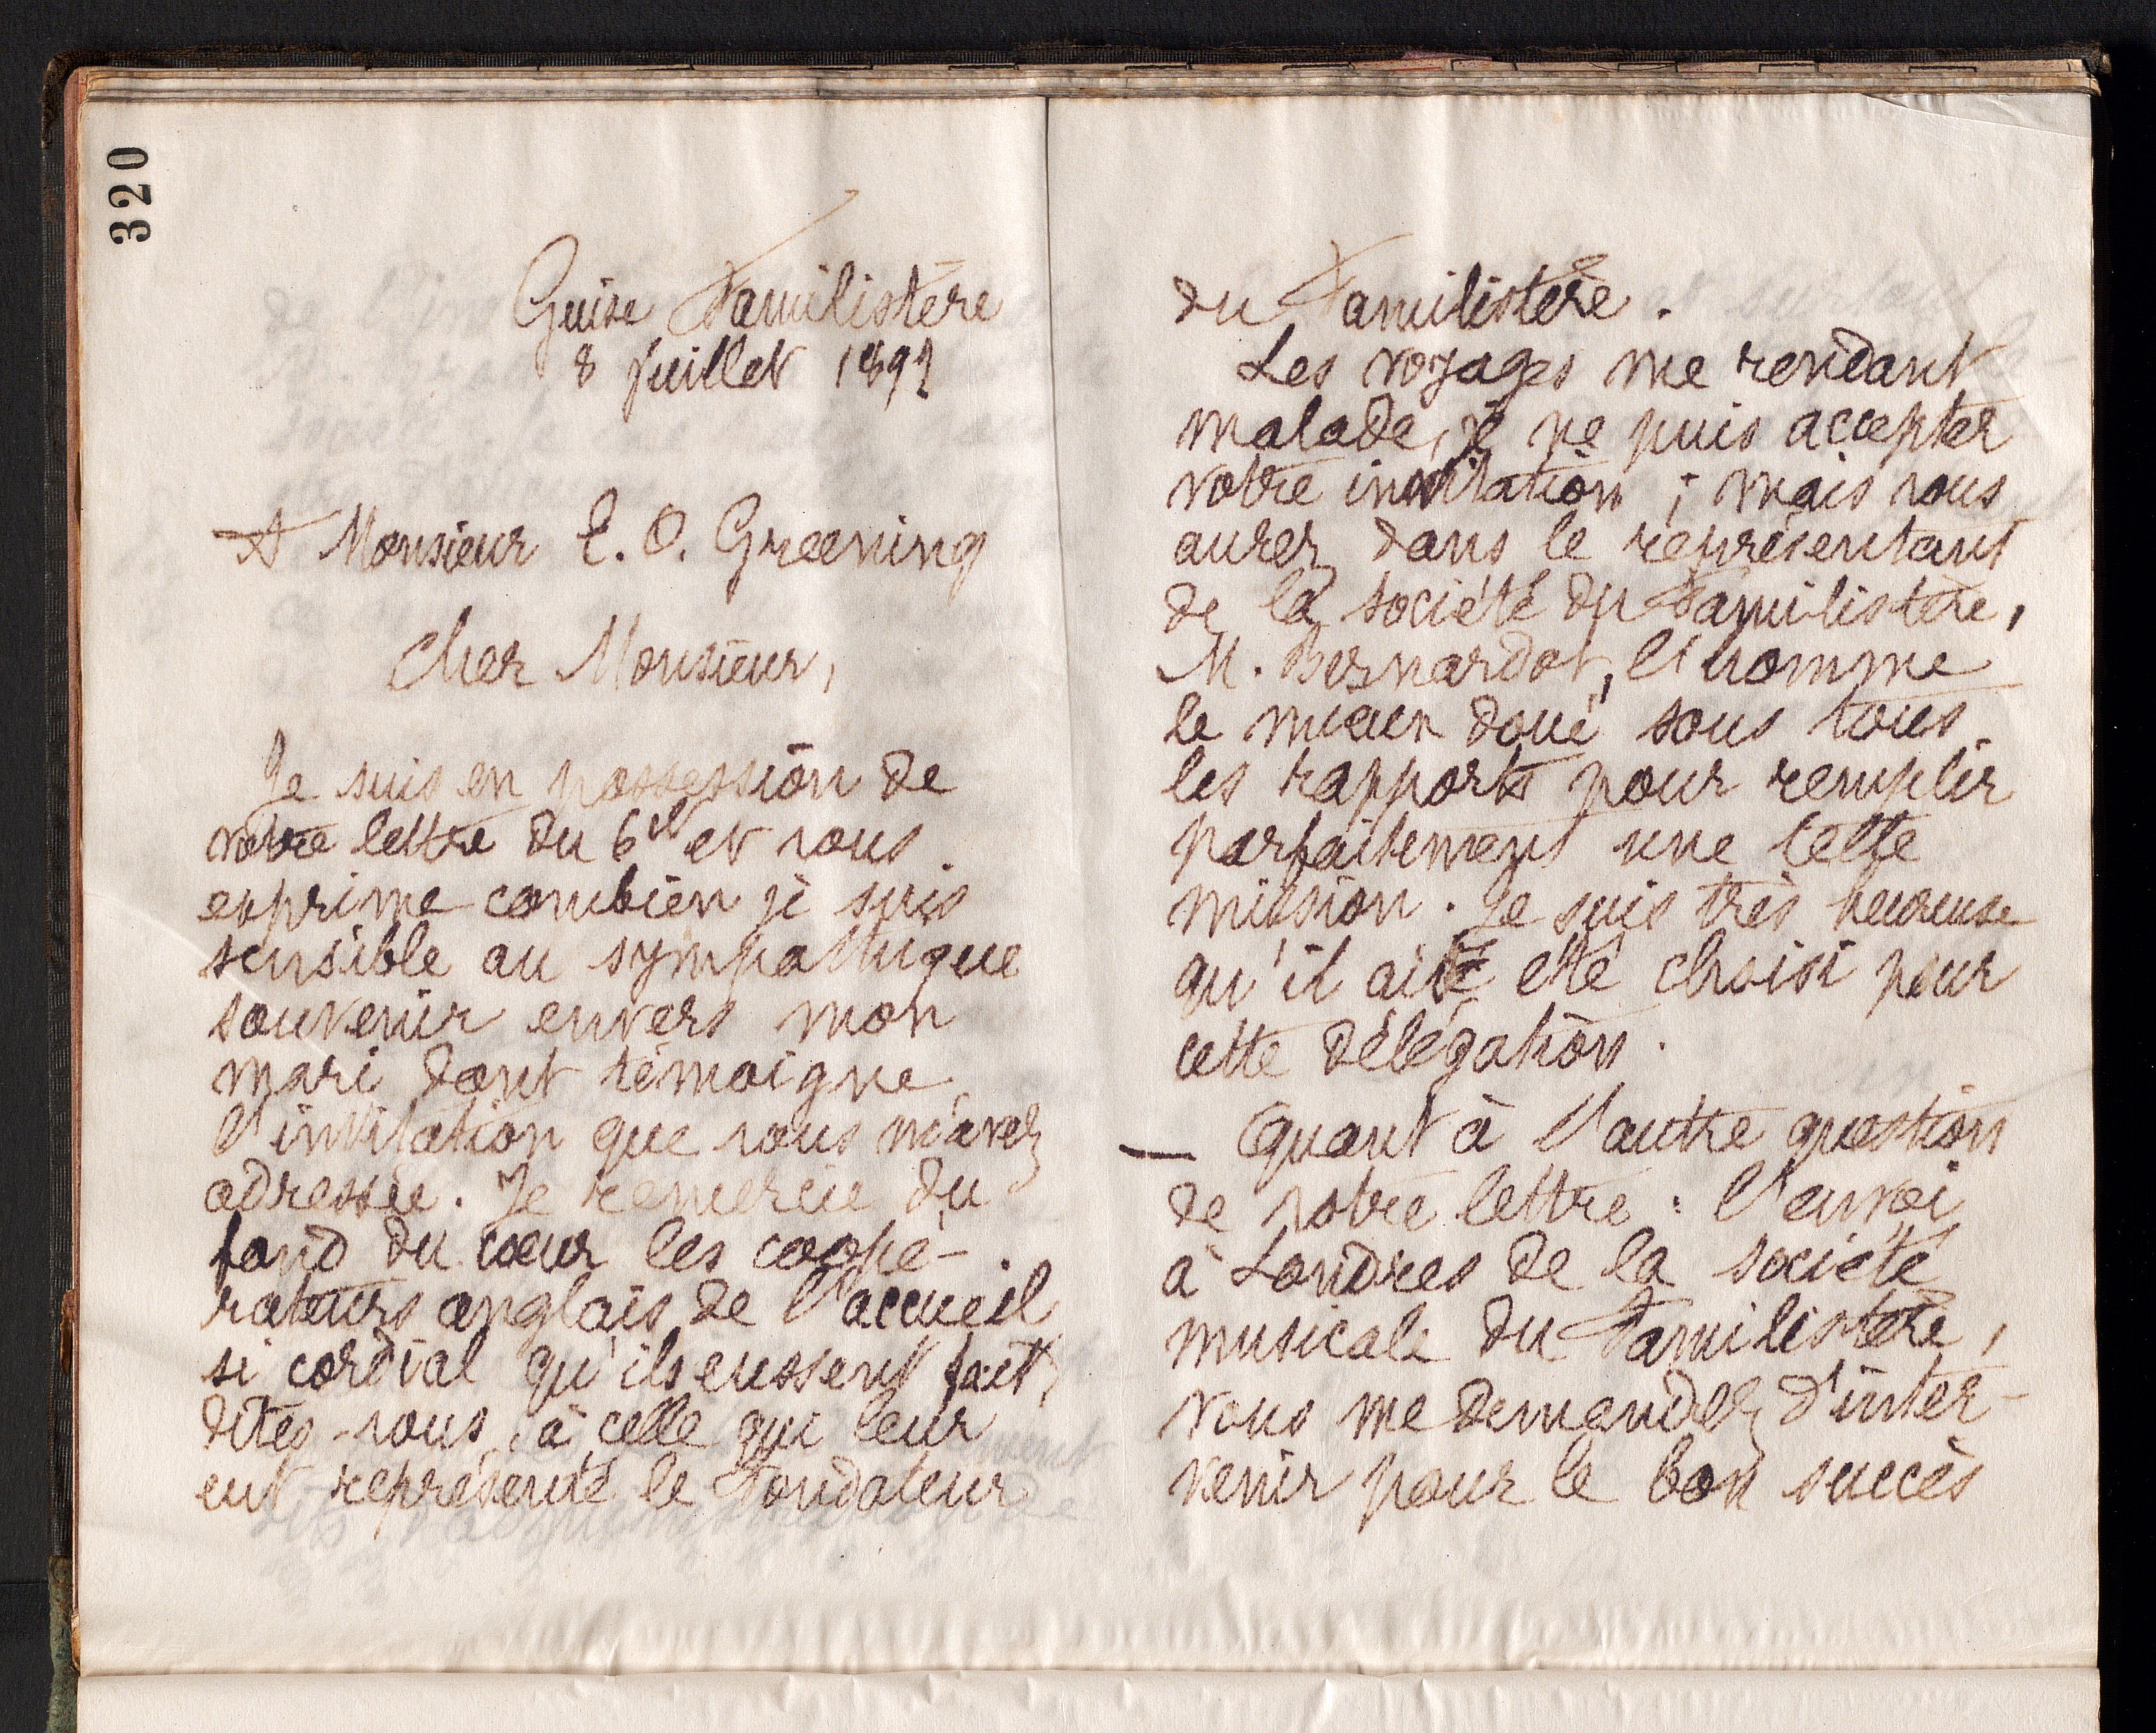 320
Guise Familistère
8 juillet 1892
A Monsieur E. O. Greening
Cher Monsieur,
Je suis en possession de
votre lettre du 6 ct et vous
exprime combien je suis
sensible au sympathique
souvenir envers mon
mari dont témoigne
l'invitation que vous m'avez
adressée. Je remercie du
fond du cœur les coopé-
rateurs anglais de l'accueil
si cordial qu'ils eussent fait,
dites-vous, à celle qui leur
eut représenté le Fondateur
du Familistère.
Les voyages me rendant
malade, je ne puis accepter
votre invitation ; mais vous
aurez dans le représentant
de la société du Familistère,
M. Bernardot, l'homme
le mieux doué sous tous
les rapports pour remplir
parfaitement une telle
mission. Je suis très heureuse
qu'il ait été choisi pour
cette délégation.
— Quant à l'autre question
de votre lettre : l'envoi
à Londres de la société
musicale du Familistère,
vous me demandez d'inter-
venir pour le bon succès